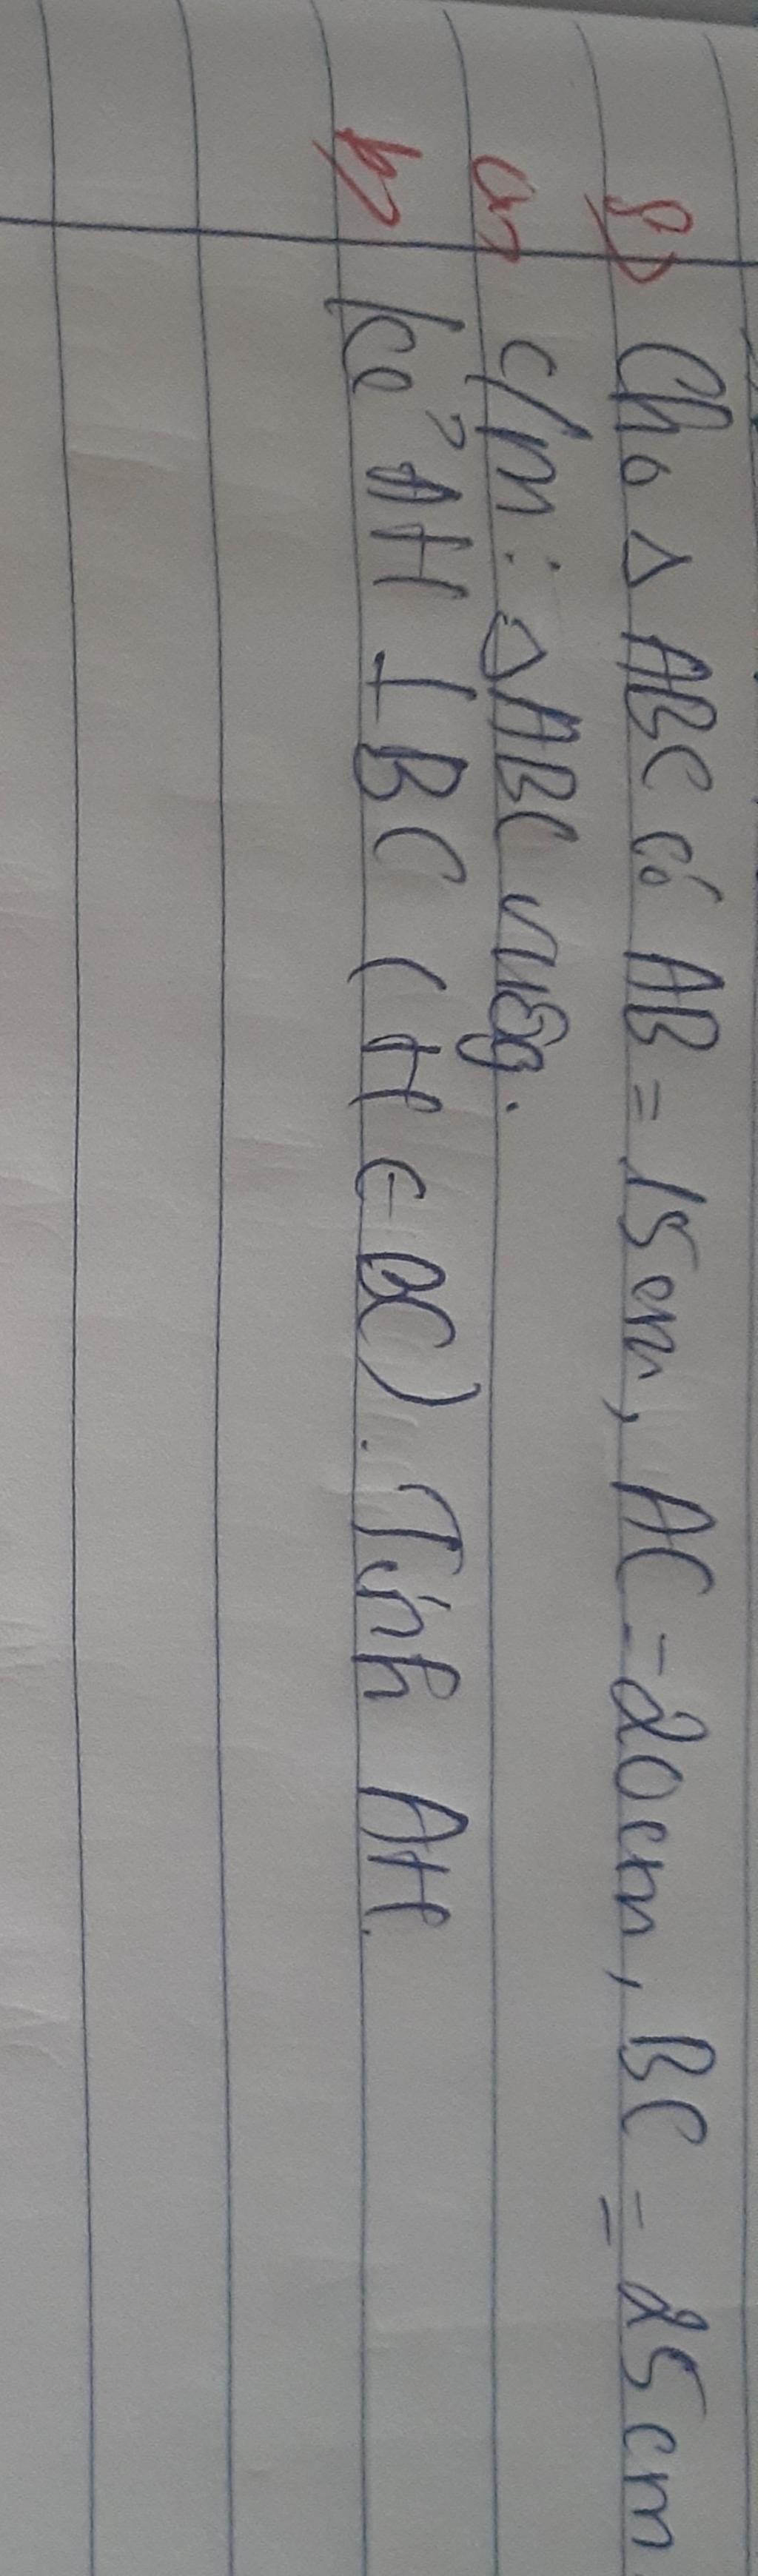 8) Cho △ ABC có AB = 15cm, AC = 20cm, BC = 25cm.
a) c/m: △ABC vuôg.
b) kẻ AH ⊥ BC (H ∈ BC). Tính AH.